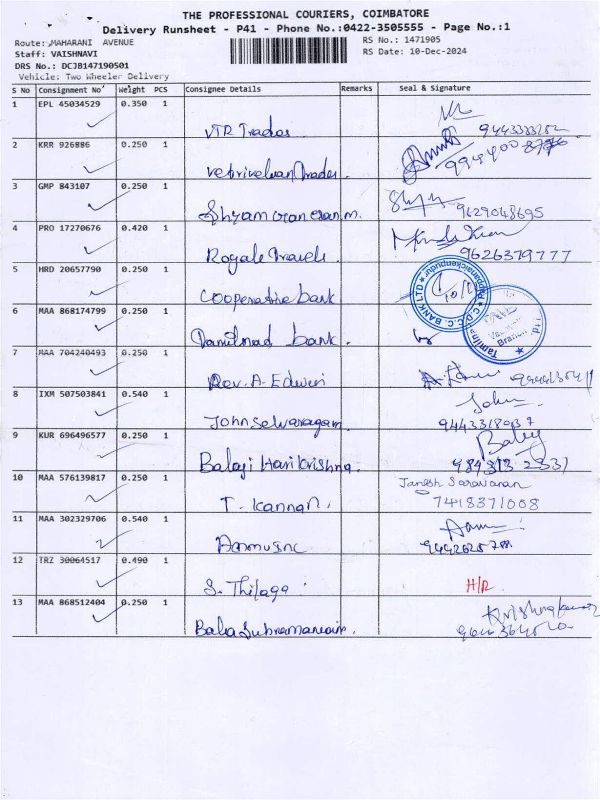 THE PROFESSIONAL COURIERS, COIMBATORE
Delivery Runsheet - P41 - Phone No.:0422-3505555 - Page No.:1
Route: MAHARANI AVENUE
RS No.: 1471905
Staff: VAISHNAVI
RS Date: 10-Dec-2024
DRS No.: DCJB147190501
Vehicle: Two Wheeler Delivery
S No Consignment No Weight PCS Consignee Details Remarks Seal & Signature
1 EPL 45034529 0.350 1
VTR Trados 9443333252
2 KRR 926886 0.250 1
Vetrivelvan Trades
3 GMP 843107 0.250 1
9629048695
4 PRO 17270676 0.420 1
Royale Travels 9626379777
5 HRD 20657790 0.250 1
Cooperative bank
6 MAA 868174799 0.250 1
Tamilnad bank
Branch
7 MAA 704240493 0.250 1
Rev. A. Edwin
8 IXM 507503841 0.540 1
John Selvaragam. John
9 KUR 696496577 0.250 1
Balaji Hari Krishna. Balaji
10 MAA 576139817 0.250 1
T. Kannan. Janesh Saravanan
7418371008
11 MAA 302329706 0.540 1
12 TRZ 30064517 0.490 1
S. Thilaga H/R
13 MAA 868512404 0.250 1
Bala Subramaniam. Krishnakumar